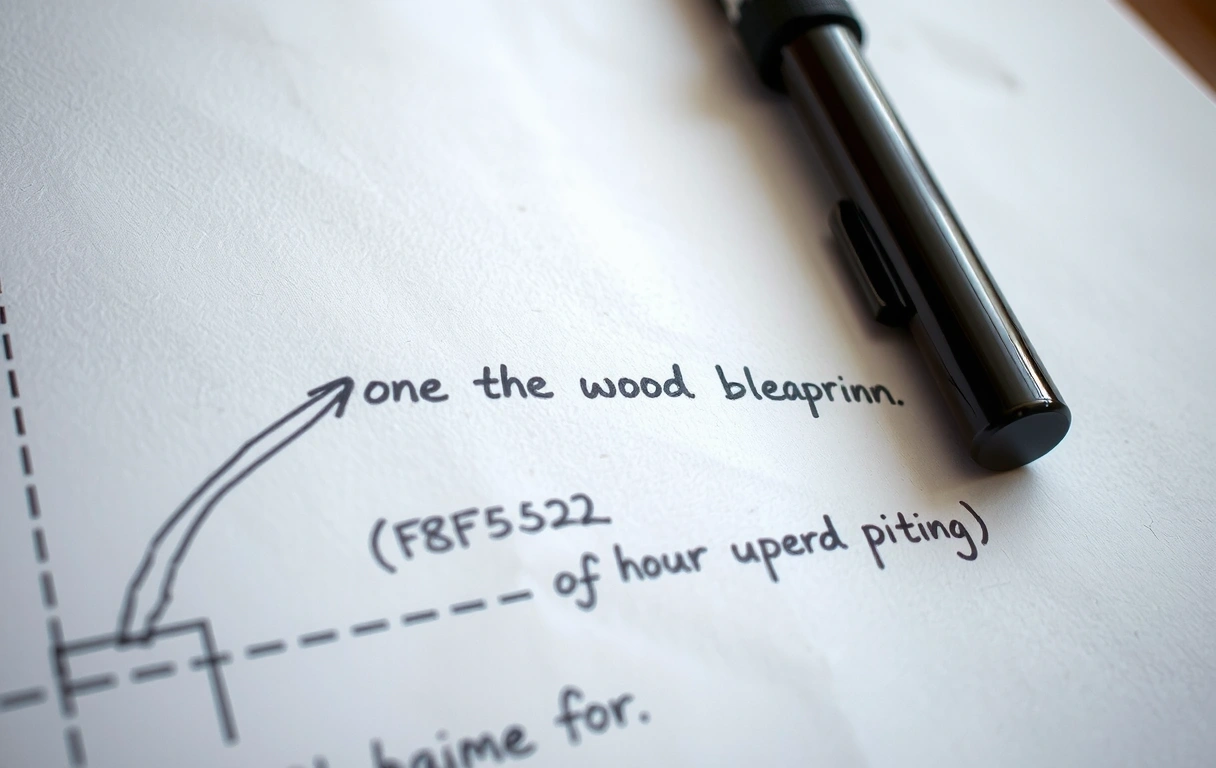 one the wood bleaprinn.
(F8F5522
of hour uperd piting)
haime for.